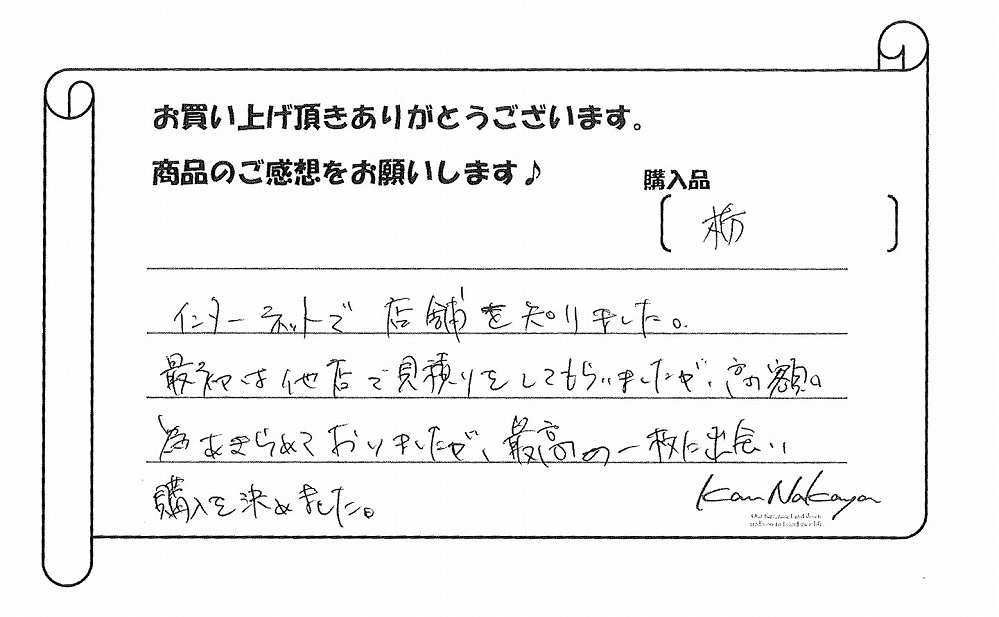 お買い上げ頂きありがとうございます。
商品のご感想をお願いします♪
購入品
栃
インターネットで 店舗を知りました。
最初は他店で見積りをしてもらいましたが、高額の
為あきらめておりましたが、最高の一枚に出会い
購入を決めました。
Kan Nakaya